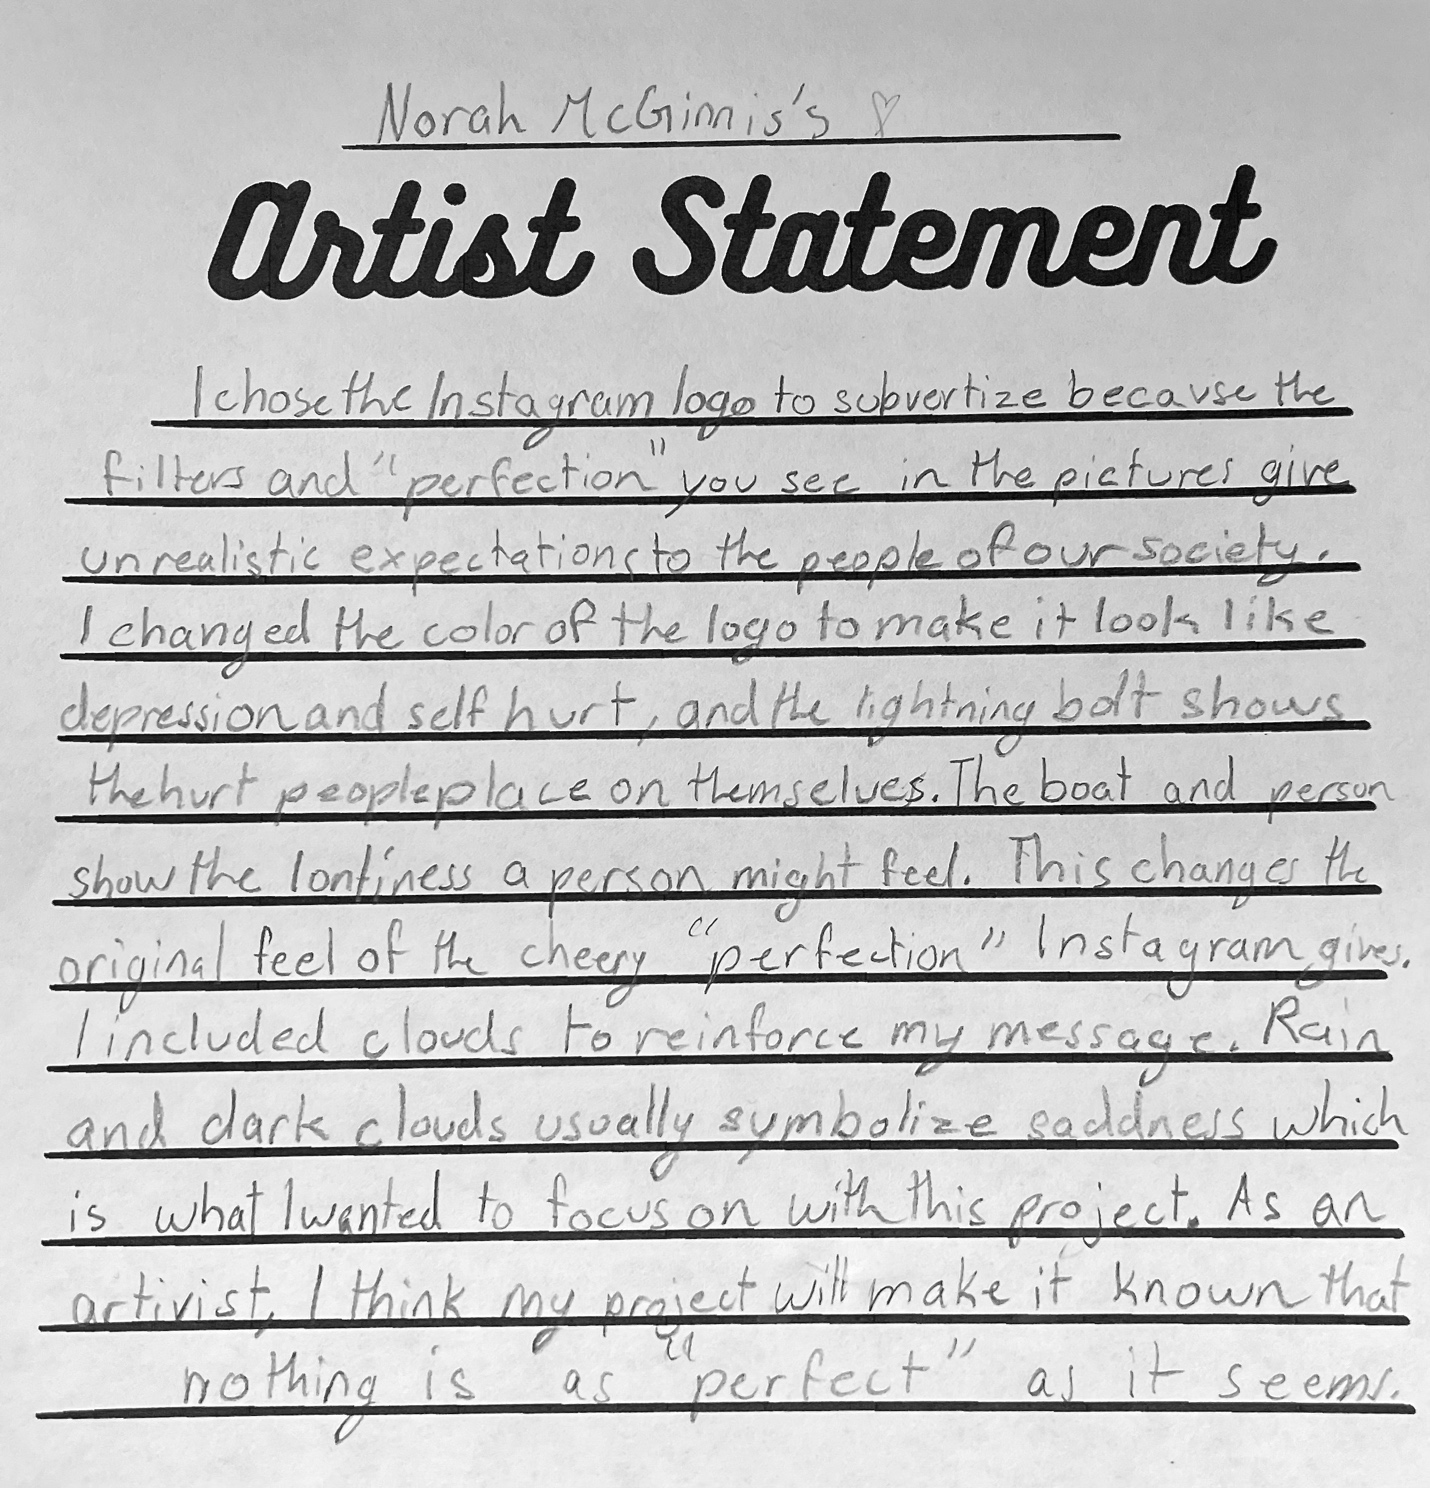 Norah McGinnis's ♡
Artist Statement
I chose the Instagram logo to subvertize because the
filters and "perfection" you see in the pictures give
unrealistic expectations to the people of our society.
I changed the color of the logo to make it look like
depression and self hurt, and the lightning bolt shows
the hurt people place on themselves. The boat and person
show the a person might feel. This changes the
original feel of the cheery "perfection" Instagram gives.
I included clouds to reinforce my message. Rain
and dark clouds usually symbolize saddness which
is what I wanted to focus on with this project. As an
artivist, I think my project will make it known that
nothing is as "perfect" as it seems.